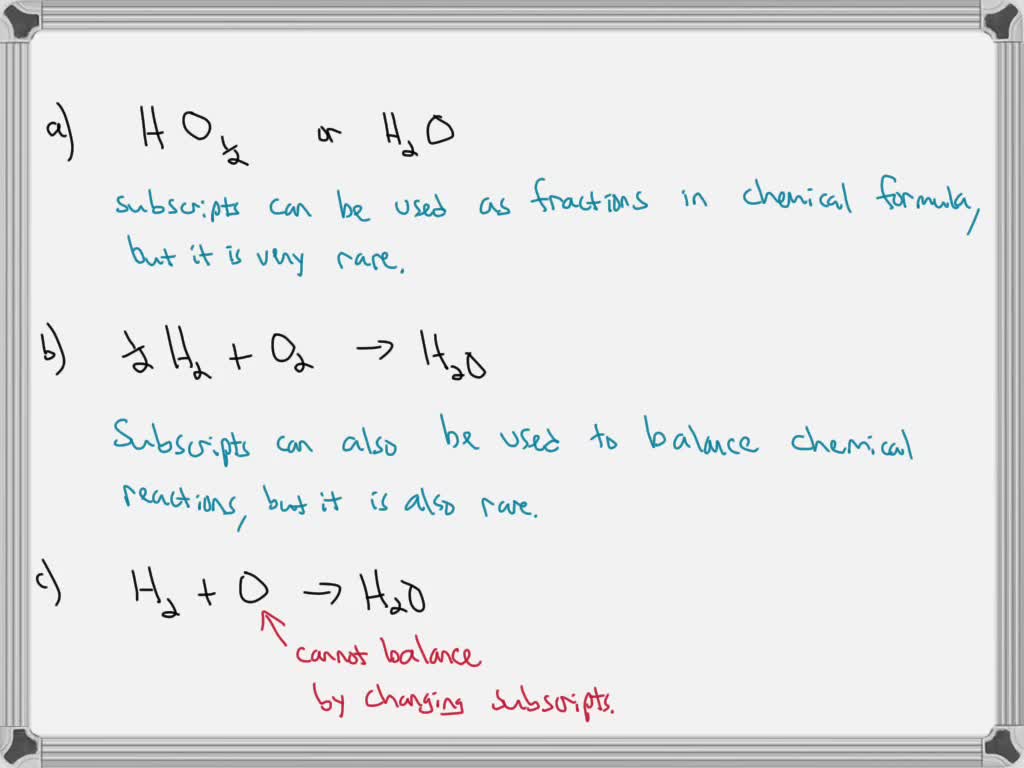 a) HO½ or H₂O
subscripts can be used as fractions in chemical formula,
but it is very rare.
b) ½ H₂ + O₂ → H₂O
Subscripts can also be used to balance chemical
reactions, but it is also rare.
c) H₂ + O → H₂O
cannot balance
by changing subscripts.